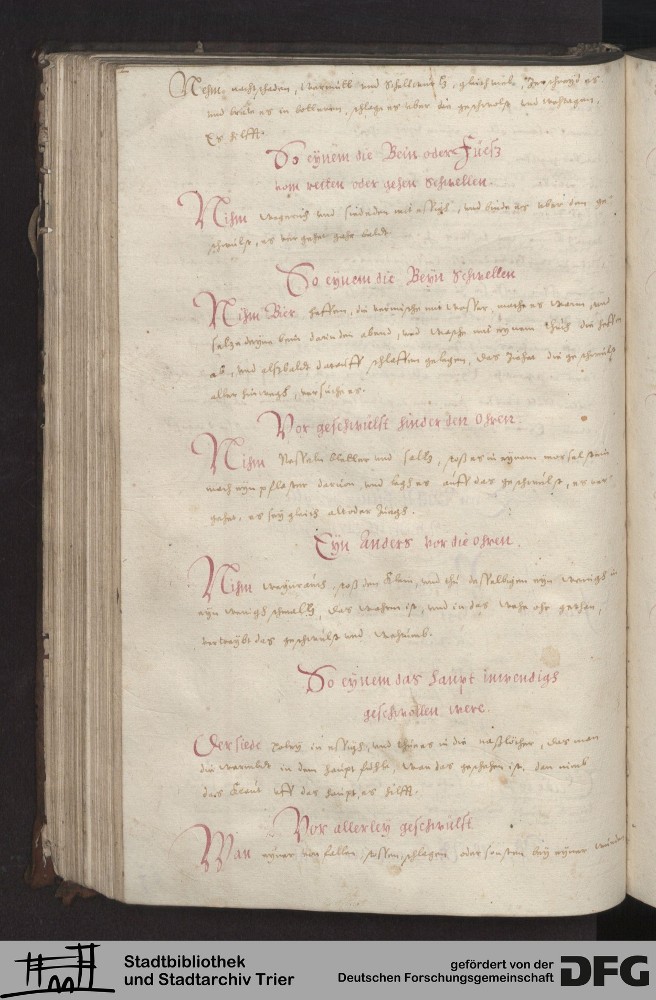 Nehm nachtschaden, wermutt und Schellwurtz, gleich viel,
und in und
Es hilfft.
So eÿnem die Bein oder Fueß
vom reiten oder gehen Schwellen.
Nihm wegerich und mit essigk, und binde es uber dem ge
schwulst, es vergehet gahr baldt.
So eynem die Beÿn Schwellen
Nihm Bier heffen, die vermische mit wasser, mache es warm, und
setze deyne bein darin den abend, und wasche mit eynem thuch die heffen
ab, und alsbaldt darauff schlaffen gelegen, das zehet die geschwulst
aller hinwegk, versuch es.
Vor geschwulst hinder den Ohren.
Nihm Nesseln bletter und saltz, stoß es in eynem morselstein
mach eyn pflaster daruon, und legh es auff das geschwulst, es ver
gehet, es seÿ gleich alt oder jungk.
Eÿn Anders vor die Ohren.
Nihm weyrauch, stoß den klein, und thu desselbigen eyn wenigk in
eyn wenigk schmaltz, das warm ist, und in das ohr gethan,
vertreÿbt das geschwulst und
So eÿnem das haupt inwendigk
geschwollen were.
Der siede poleÿ in essigk, und thue es in die naßlöcher, das man
die wermbde in dem haupt fuhle, wan das geschehen ist, dan nimb
das kraut uff das haupt, es hilfft.
Vor allerleÿ geschwulst
Wan eyner von fallen, stossen, schlegen, oder sonsten beÿ eyner wunden
Stadtbibliothek
und Stadtarchiv Trier
gefördert von der
Deutschen Forschungsgemeinschaft
DFG